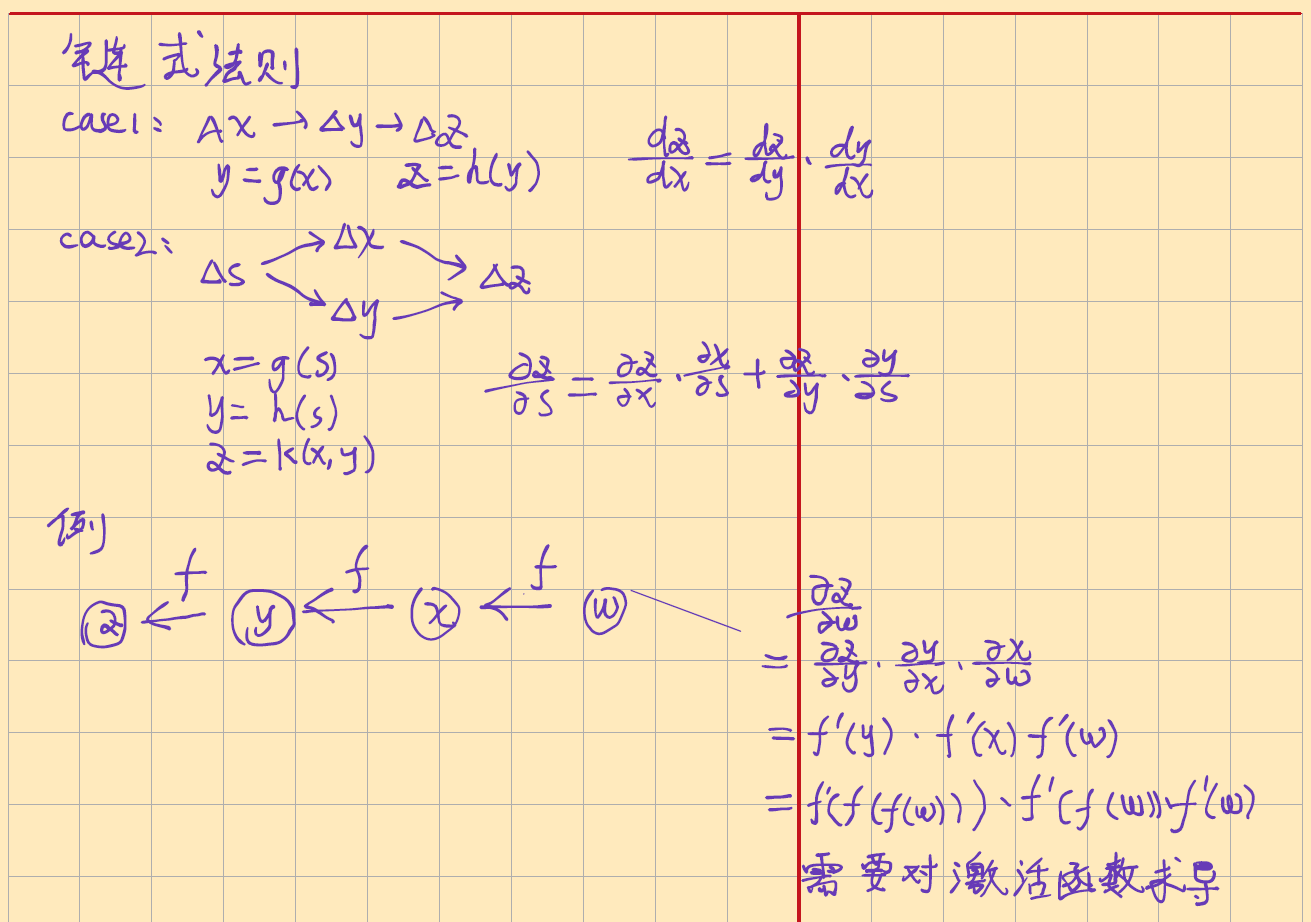 链式法则
case1: Δx → Δy → Δz
y = g(x) z = h(y) dz/dx = dz/dy · dy/dx
case2:
Δs → Δx → Δz
Δs → Δy → Δz
x = g(s)
y = h(s)
z = k(x, y)
∂z/∂s = ∂z/∂x · ∂x/∂s + ∂z/∂y · ∂y/∂s
例
f f f
z ← y ← x ← w
∂z/∂w
= ∂z/∂y · ∂y/∂x · ∂x/∂w
= f'(y) · f'(x) f'(w)
= f'(f(f(w))) · f'(f(w)) · f'(w)
需要对激活函数求导